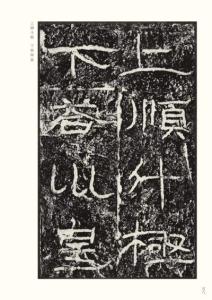 上順斗極
下答巛皇